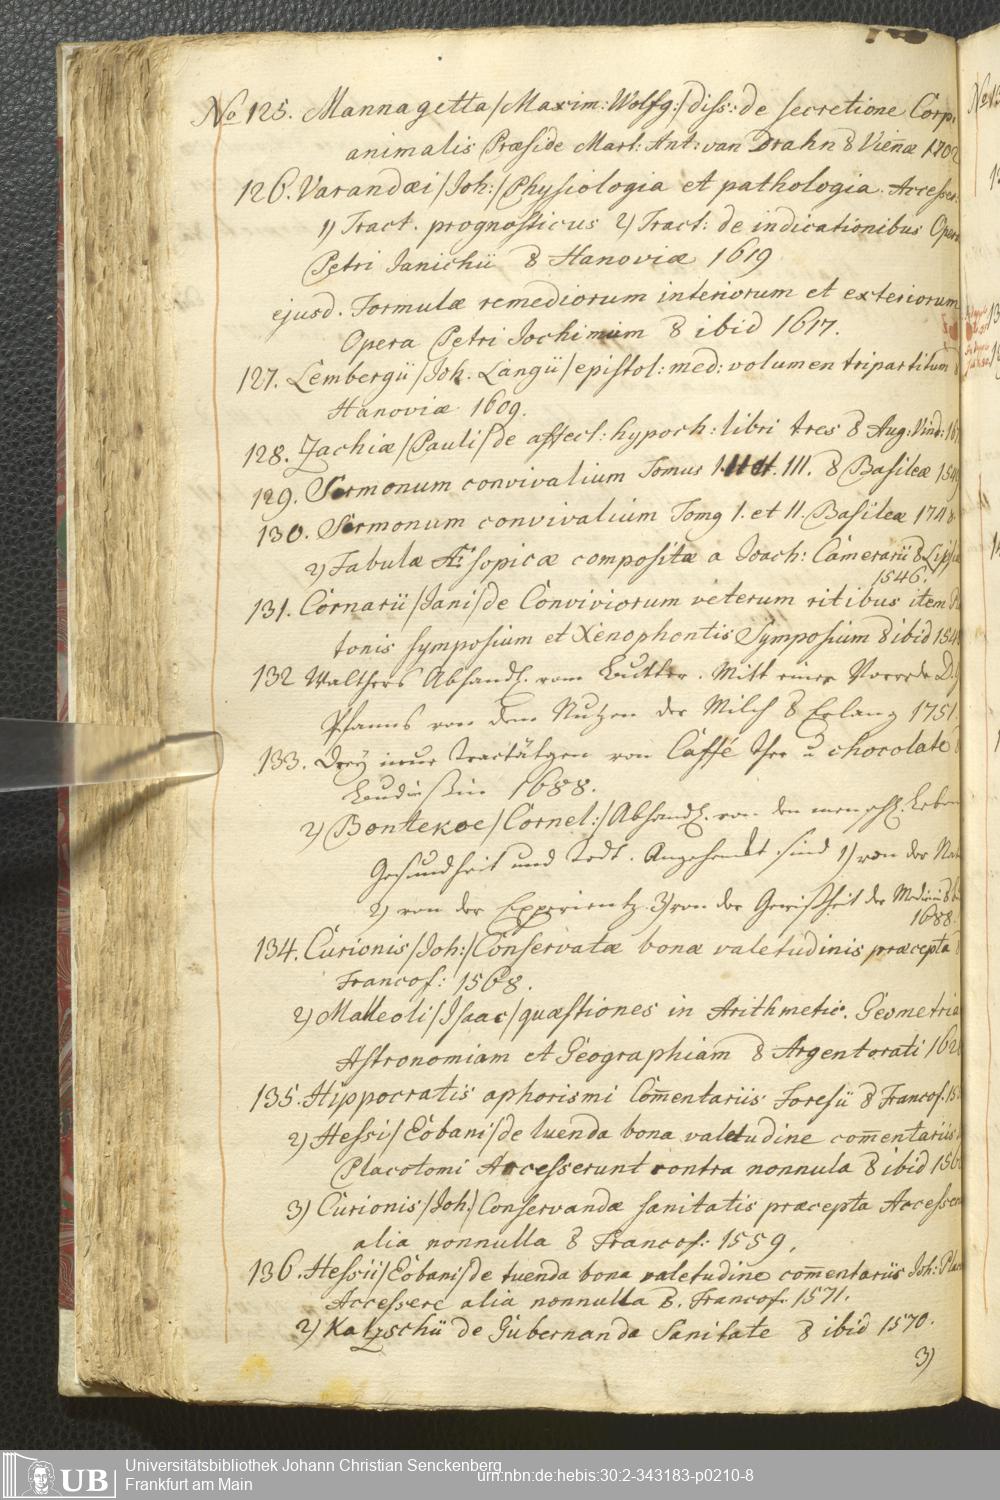 No 125. Mannagetta/Maxim: Wolfg:/diss: de secretione Corp.
animalis Præside Mart: Ant: van Drahn 8 Vieñæ 1702
126. Varandæi/Joh:/Physiologia et pathologia. Accesser.
1) Tract. prognosticus 2) Tract: de indicationibus Opera
Petri Janichii 8 Hanoviæ 1619
ejusd. Formulæ remediorum interiorum et exteriorum
Opera Petri Jochimium 8 ibid 1617.
127. Lembergii/Joh. Langii/epistol: med: volumen tripartitum
Hanoviæ 1609.
128. Zachiæ/Pauli/de affect: hypoch: libri tres 8 Aug: Vind:
129. Sermonum convivalium Tomus III. 8 Basileæ
130. Sermonum convivalium Tomg I. et II. Basileæ
2) Fabulæ Æsopicæ compositæ a Joach: Camerarii 8 Lipsiæ
1546.
131. Cornarii/Jani/de Conviviorum veterum ritibus item Pla
tonis symposium et Xenophontis Symposium 8 ibid
132 Walthers Abhandl. vom Butter. Mitt einer Vorrede D.
Pfanns von dem Nutzen der Milch 8 Erlang 1751.
133. Drey neue Tractätgen von Caffé Thee u chocolate
Budissin 1688.
2) Bontekoe/Cornel:/Abhandl. von den menschl. Leben
Gesundheit und Todt. Angehenckt sind 1) von der Nat
2) von der Experientz. 3) von der Gewißheit der Medicin 8
1688.
134. Curionis/Joh:/Conservatæ bonæ valetudinis præcepta
Francof: 1568.
2) Malleoli/Isaac/quæstiones in Arithmetic. Geometria
Astronomiam et Geographiam 8 Argentorati
135. Hyppocratis aphorismi Com̃entariis Foresii 8 Francof.
2) Hessi/Eobani/de tuenda bona valetudine com̃entariis
Placotomi Accesserunt contra nonnula 8 ibid
3) Curionis/Joh:/Conservandæ sanitatis præcepta Accessere
alia nonnulla 8 Francof: 1559.
136. Hessii/Eobani/de tuenda bona valetudine com̃entariis Joh: Plac
Accessere alia nonnulla 8. Francof. 1571.
2) Katzschii de Gubernanda Sanitate 8 ibid 1570.
3)
UB
Universitätsbibliothek Johann Christian Senckenberg
Frankfurt am Main
urn:nbn:de:hebis:30:2-343183-p0210-8